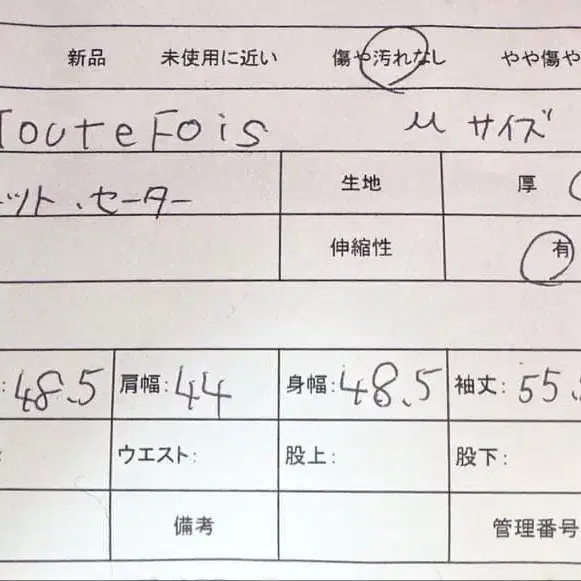 新品 未使用に近い 傷や汚れなし やや傷や
TouteFois M サイズ
ット、セーター 生地 厚
伸縮性 有
:48.5 肩幅:44 身幅:48.5 袖丈:55.
: ウエスト: 股上: 股下:
備考 管理番号